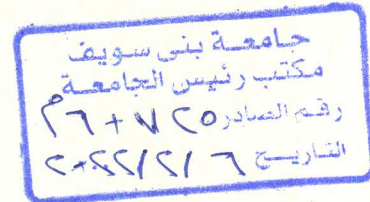 جامعة بنى سويف
مكتب رئيس الجامعة
رقم الصادر
التاريخ ٢٠٢٢/٢/٦